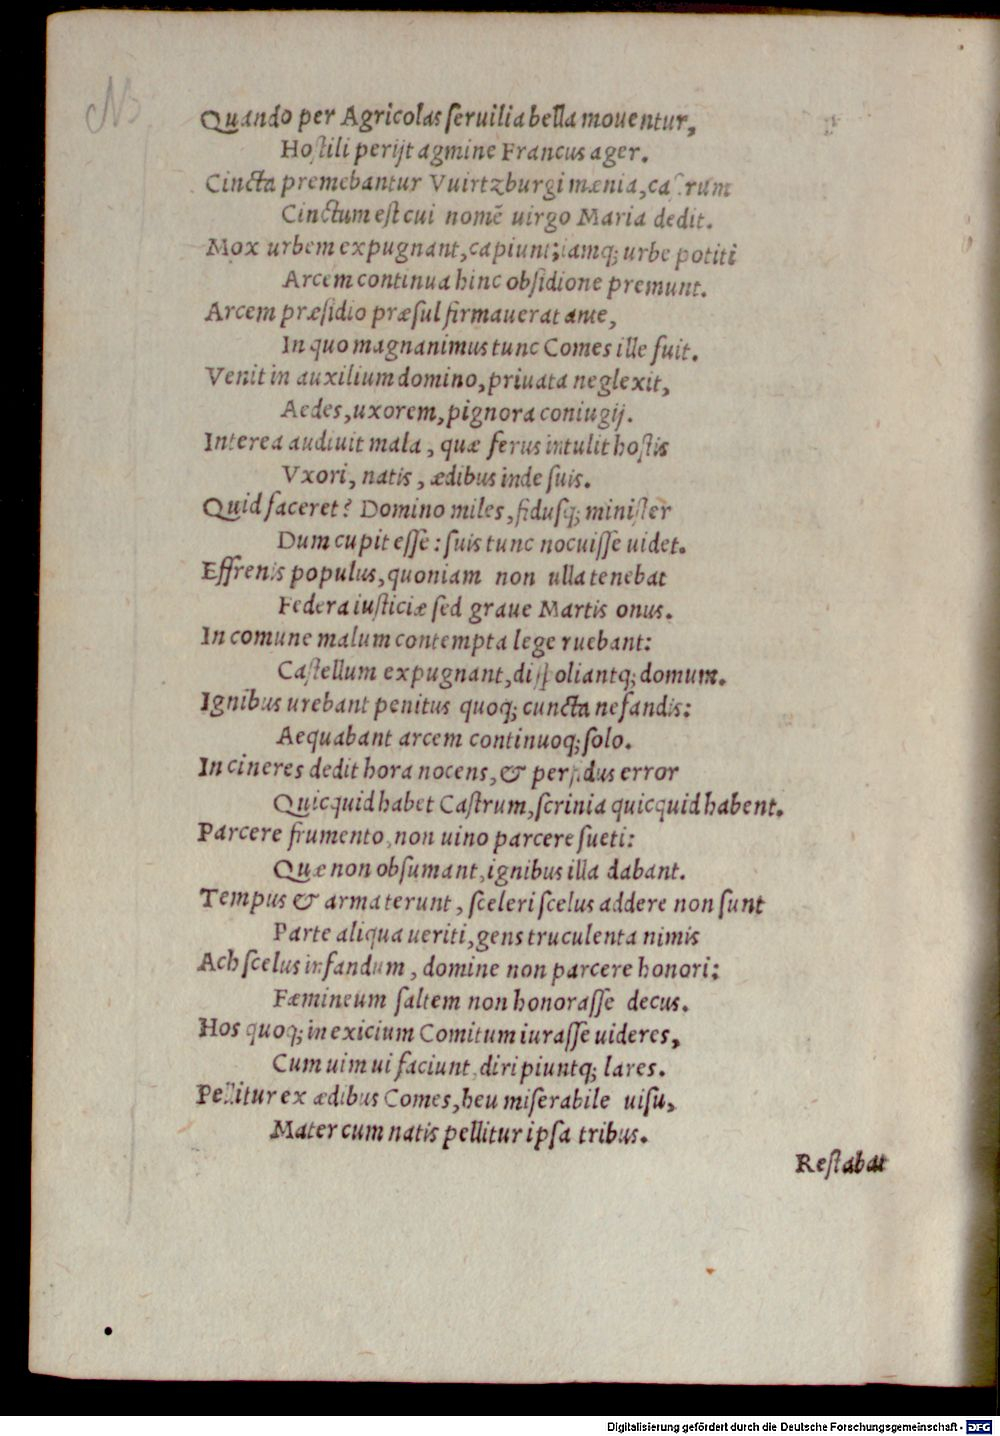 Quando per Agricolas seruilia bella mouentur,
Hostili perijt agmine Francus ager.
Cincta premebantur Vuirtzburgi mænia, castrum
Cinctum est cui nomē uirgo Maria dedit.
Mox urbem expugnant, capiunt; iamq; urbe potiti
Arcem continua hinc obsidione premunt.
Arcem præsidio præsul firmauerat ante,
In quo magnanimus tunc Comes ille fuit.
Venit in auxilium domino, priuata neglexit,
Aedes, uxorem, pignora coniugij.
Interea audiuit mala, quæ ferus intulit hostis
Vxori, natis, ædibus inde suis.
Quid faceret? Domino miles, fidusq; minister
Dum cupit esse: suis tunc nocuisse uidet.
Effrenis populus, quoniam non ulla tenebat
Federa iusticiæ sed graue Martis onus.
In comune malum contempta lege ruebant:
Castellum expugnant, dispoliantq; domum.
Ignibus urebant penitus quoq; cuncta nefandis:
Aequabant arcem continuoq; solo.
In cineres dedit hora nocens, & perfidus error
Quicquid habet Castrum, scrinia quicquid habent.
Parcere frumento, non uino parcere sueti:
Quæ non obsumant, ignibus illa dabant.
Tempus & arma terunt, sceleri scelus addere non sunt
Parte aliqua ueriti, gens truculenta nimis
Ach scelus infandum, domine non parcere honori:
Fæmineum saltem non honorasse decus.
Hos quoq; in exicium Comitum iurasse uideres,
Cum uim ui faciunt, diripiuntq; lares.
Pellitur ex ædibus Comes, heu miserabile uisu,
Mater cum natis pellitur ipsa tribus.
Restabat
Digitalisierung gefördert durch die Deutsche Forschungsgemeinschaft - DFG